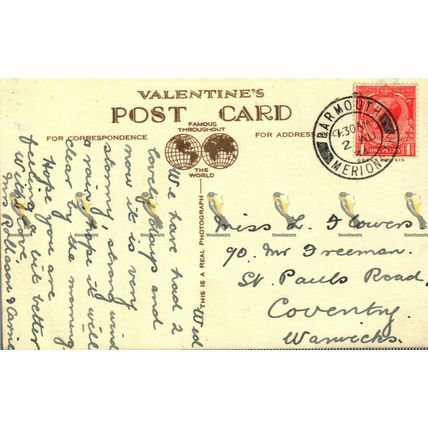 VALENTINE'S
POST CARD
FAMOUS
THROUGHOUT
THE WORLD
FOR CORRESPONDENCE
FOR ADDRESS
THIS IS A REAL PHOTOGRAPH
BARMOUTH
MERION
ONE PENNY
Wed
We have had 2
lovely days and
now it is very
stormy, strong wind
& rain hope it will
clear by the morning
Hope you are
feeling a bit better
With love
Mrs
Miss L Flowers
90. Mr Freeman.
St Pauls Road,
Coventry.
Warwicks.